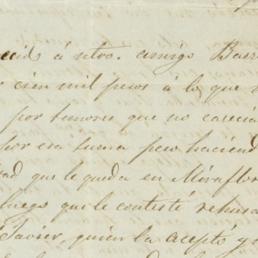 á ntro. amigo
cien mil pesos á lo que
por temores que no carecia
por era buena pero haciend
ad que le queda en Miraflor
luego que le contesté rehusa
Javier, quien la aceptó y